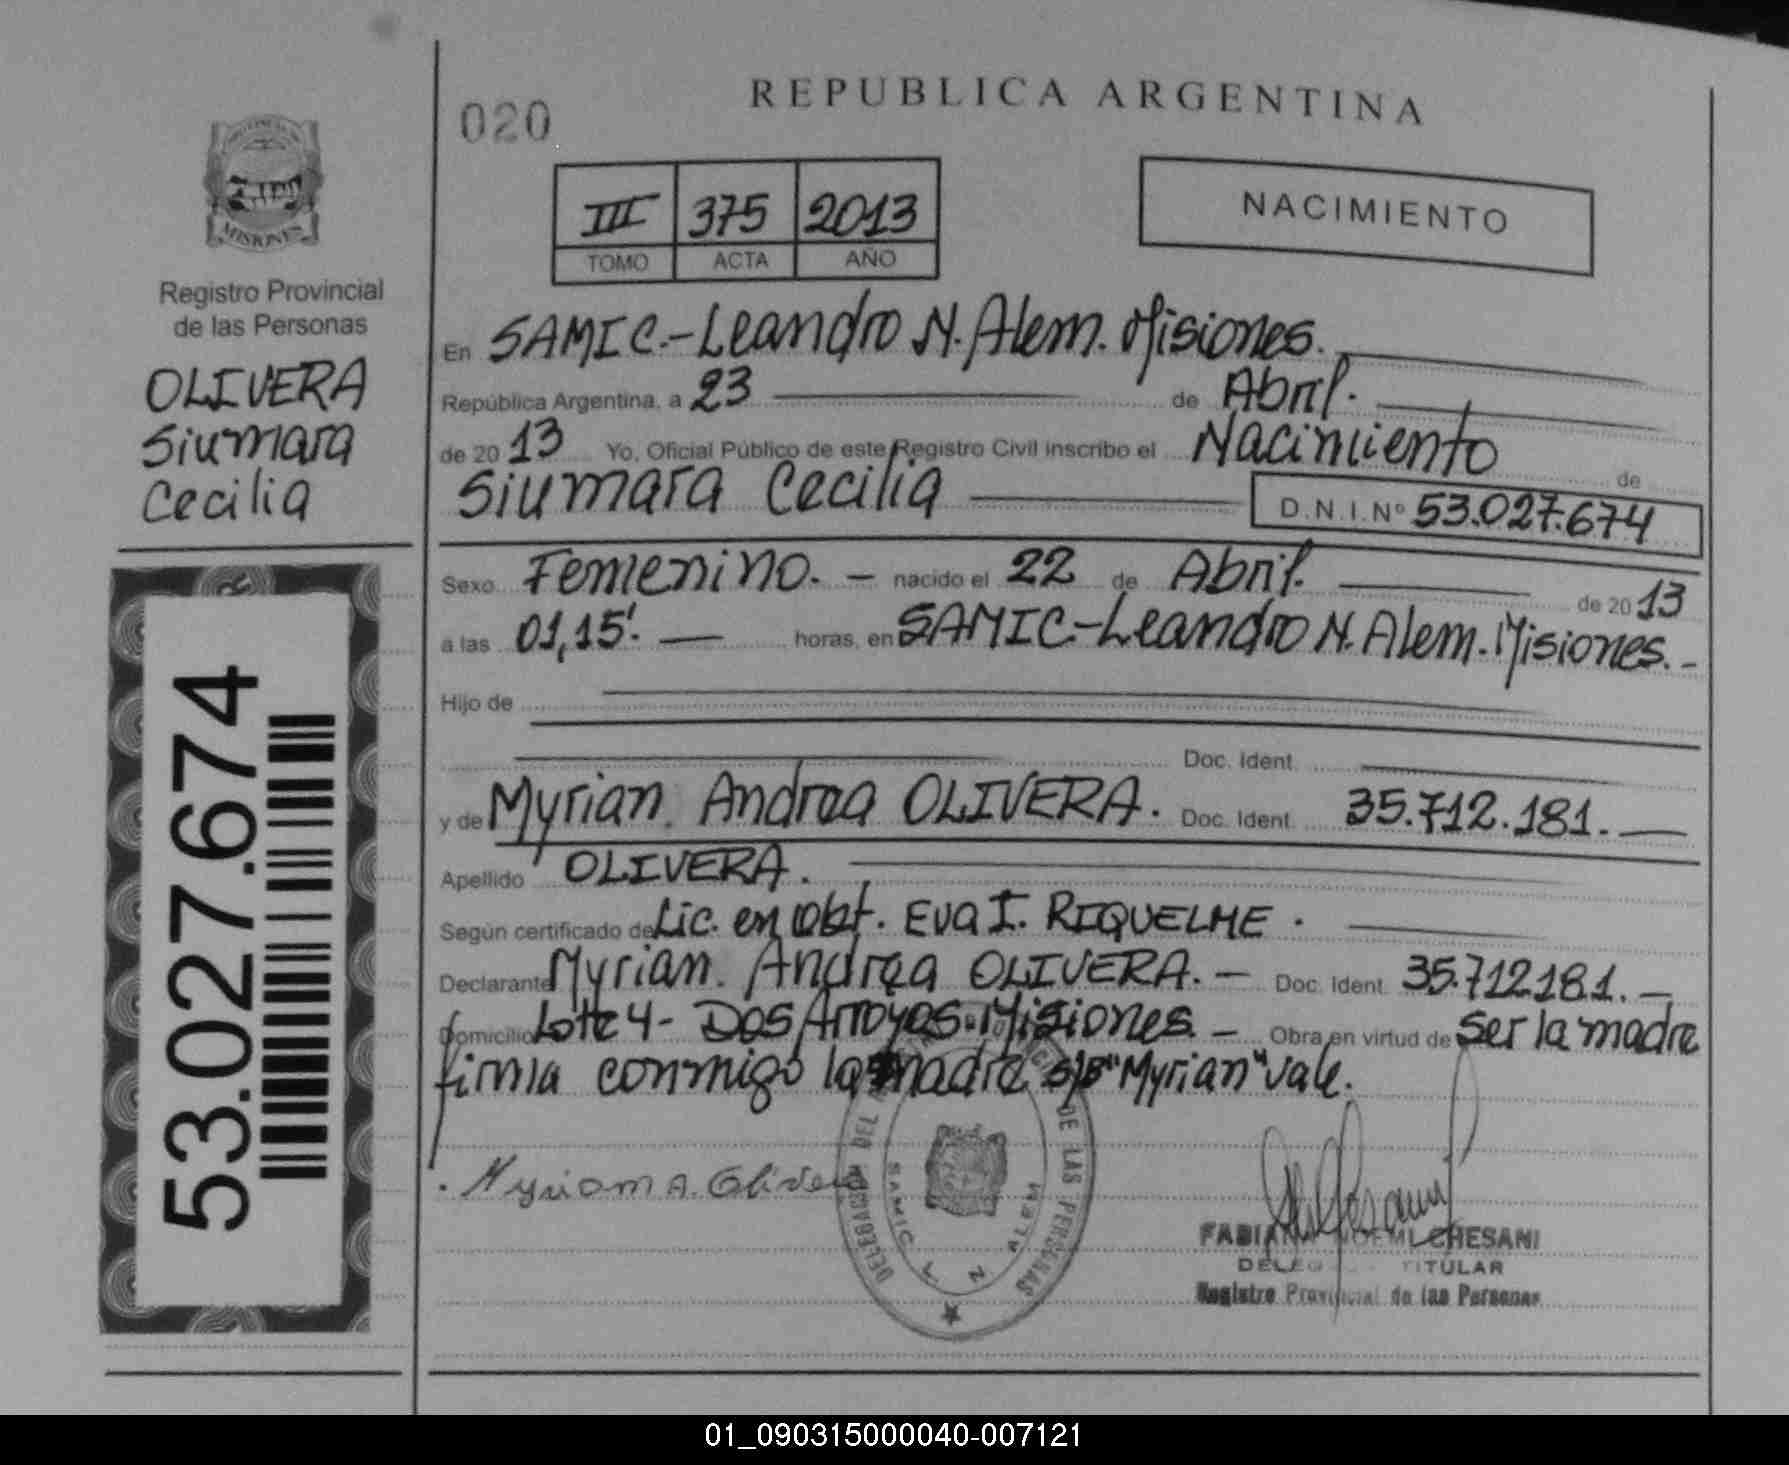 REPUBLICA ARGENTINA
020
NACIMIENTO
III 375 2013
TOMO ACTA AÑO
MISIONES
Registro Provincial
de las Personas
OLIVERA
Siumara
Cecilia
53.027.674
En SAMIC.-Leandro N. Alem. Misiones.
República Argentina, a 23 de Abril.
de 2013 Yo, Oficial Público de este Registro Civil inscribo el Nacimiento de
Siumara Cecilia D.N.I.Nº 53.027.674
Sexo Femenino. - nacido el 22 de Abril. de 2013
a las 01,15'. horas, en SAMIC-Leandro N. Alem. Misiones.-
Hijo de
Doc. Ident.
y de Myrian Andrea OLIVERA. Doc. Ident. 35.712.181.
Apellido OLIVERA.
Según certificado de Lic. en Obst. Eva I. RIQUELME.
Declarante Myrian Andrea OLIVERA. - Doc. Ident. 35.712.181. -
Domicilio Lote 4 - Dos Arroyos - Misiones. - Obra en virtud de Ser la madre
firma conmigo la madre s/b "Myrian" vale.
Myriam A. Olivera
DELEGACION DEL DE LAS PERSONAS
SAMIC L N ALEM
CHESANI
TITULAR
Registro Provincial de las Personas
01_090315000040-007121